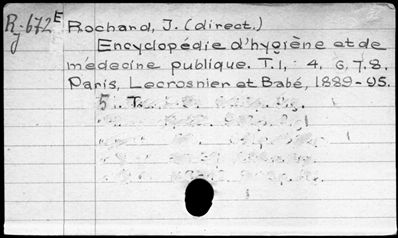 Rj-672E Rochard, J. (direct.)
Encyclopédie d'hygiène et de
médecine publique. T. 1, 4, 6, 7, 8.
Paris, Lecrosnier et Babé, 1889-95.
5 T.